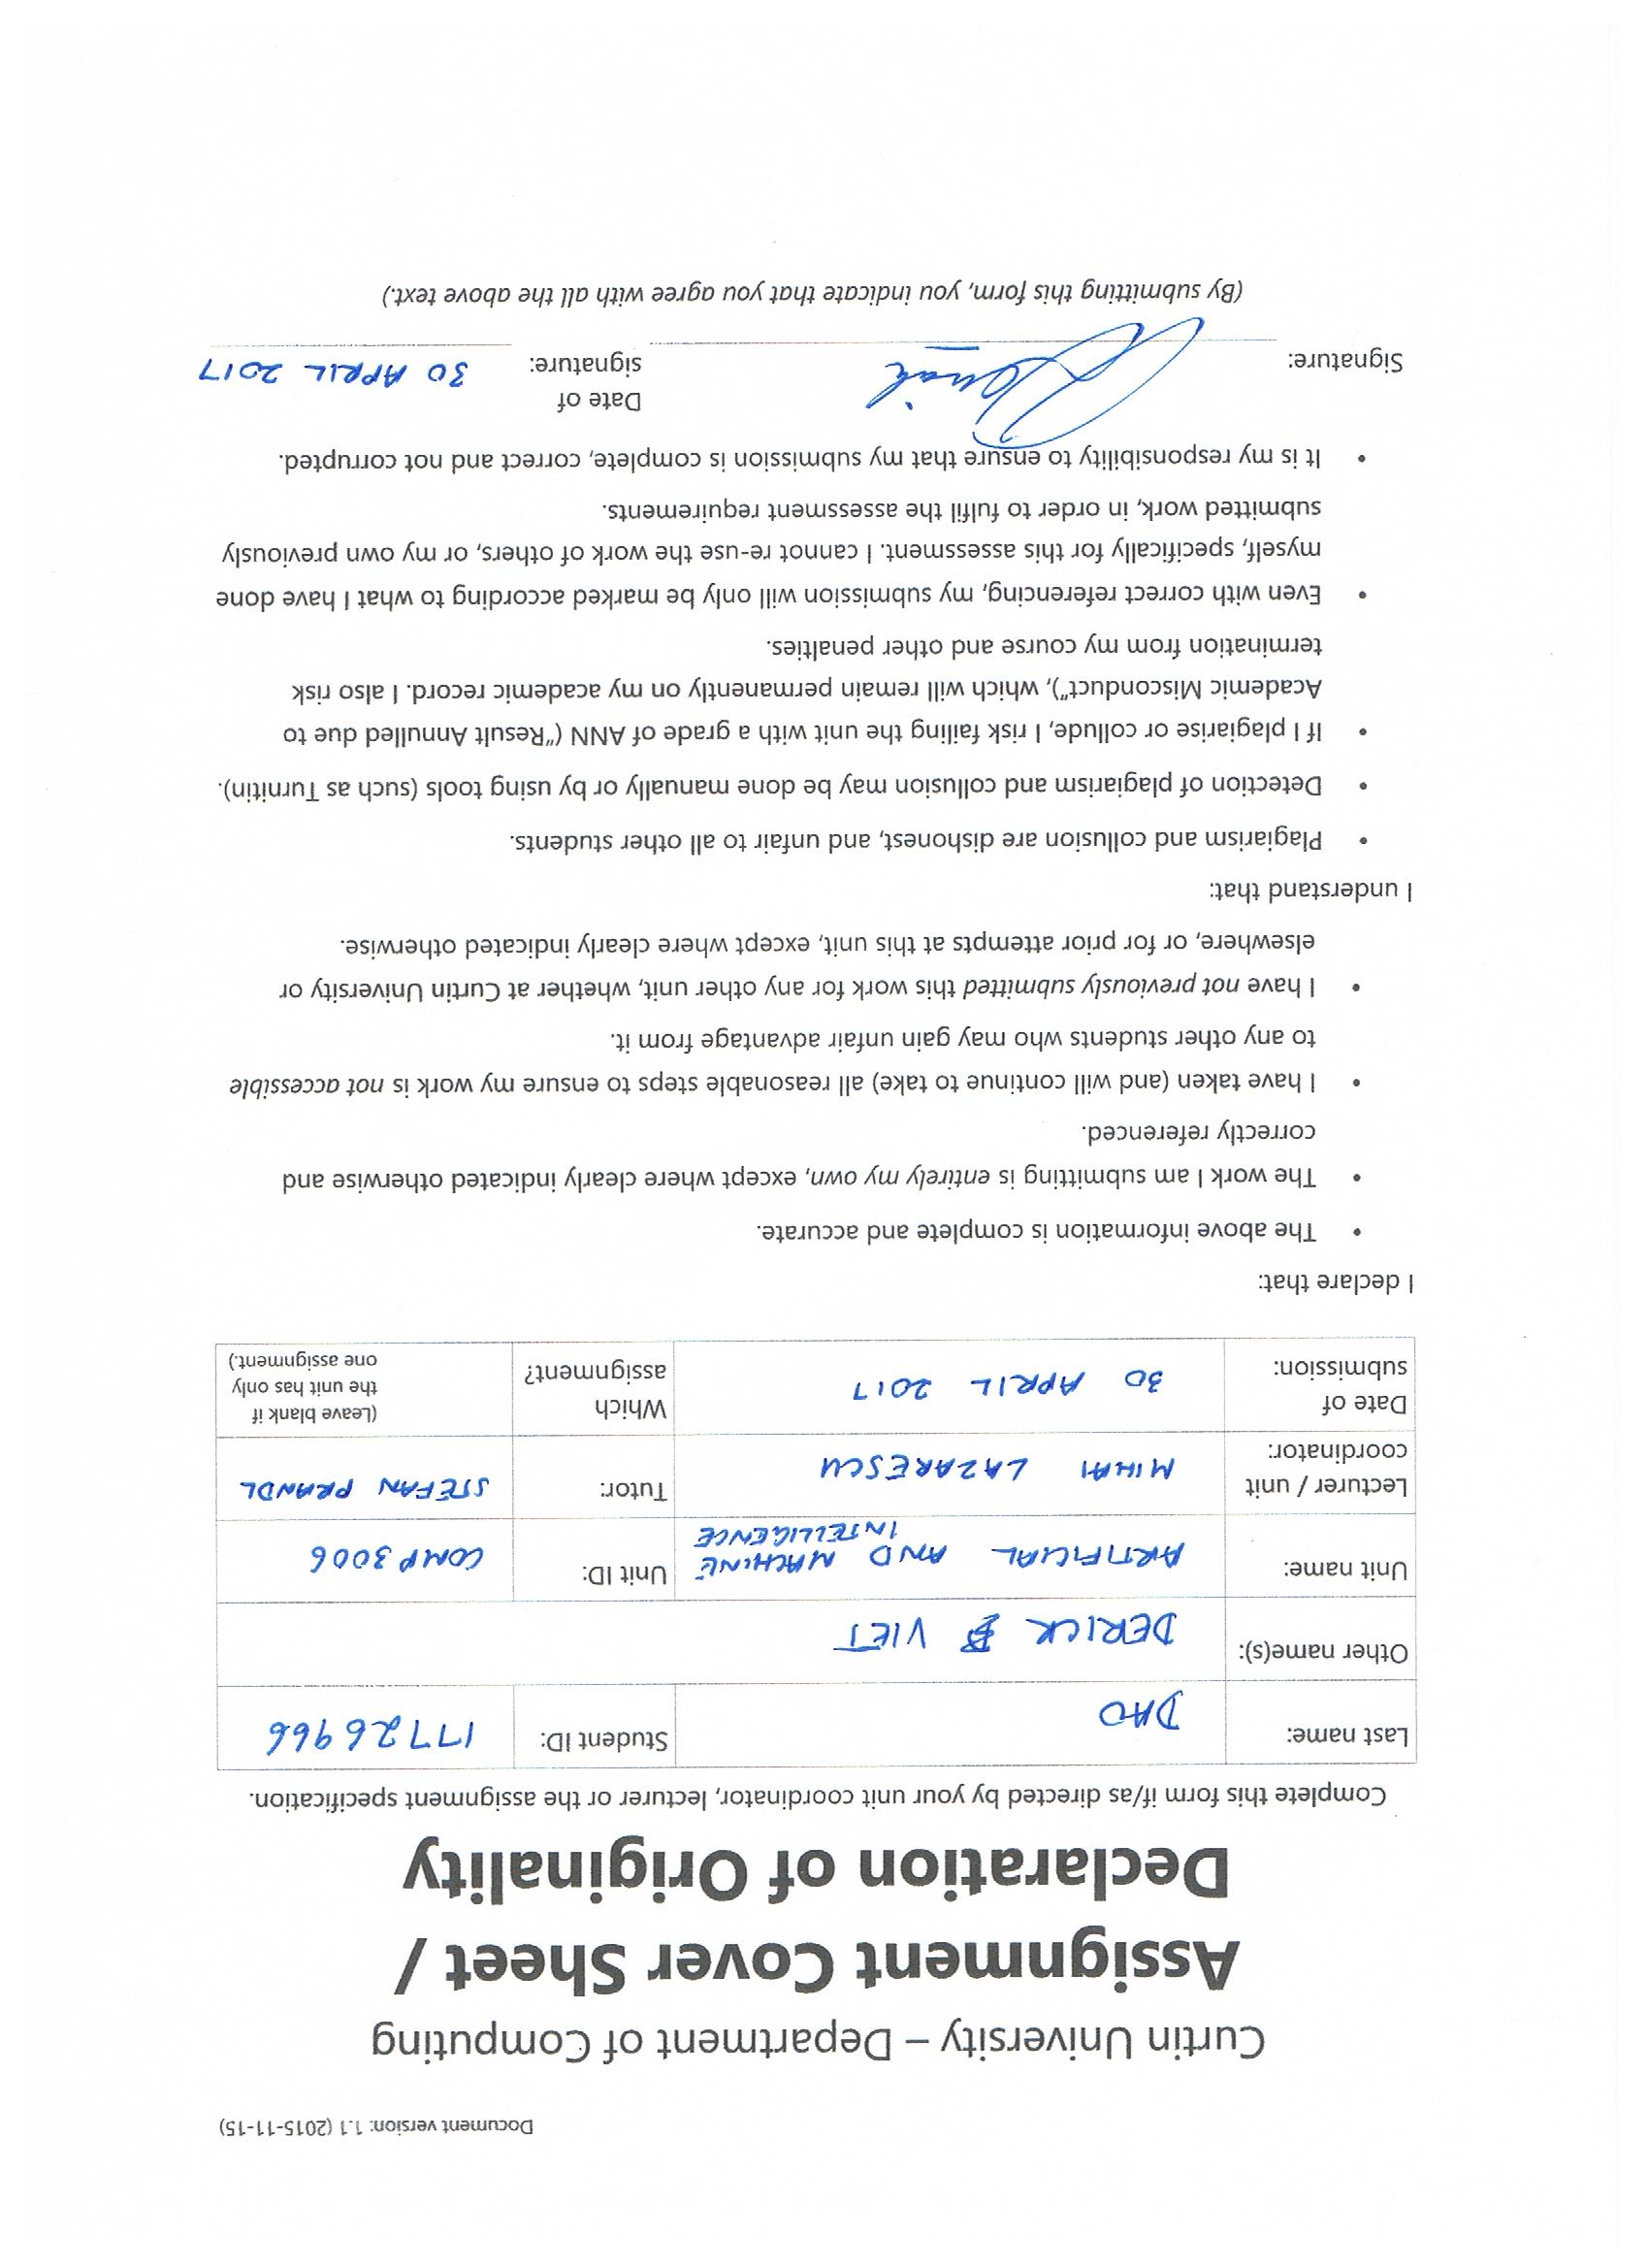 Document version: 1.1 (2015-11-15)
Curtin University – Department of Computing
Assignment Cover Sheet /
Declaration of Originality
Complete this form if/as directed by your unit coordinator, lecturer or the assignment specification.
Last name: DAO Student ID: 17726966
Other name(s): DERICK VIET
Unit name: ARTIFICIAL AND MACHINE INTELLIGENCE Unit ID: COMP3006
Lecturer / unit coordinator: MIHAI LAZARESCU Tutor: STEFAN PRANDL
Date of submission: 30 APRIL 2017 Which assignment? (Leave blank if the unit has only one assignment.)
I declare that:
• The above information is complete and accurate.
• The work I am submitting is entirely my own, except where clearly indicated otherwise and
correctly referenced.
• I have taken (and will continue to take) all reasonable steps to ensure my work is not accessible
to any other students who may gain unfair advantage from it.
• I have not previously submitted this work for any other unit, whether at Curtin University or
elsewhere, or for prior attempts at this unit, except where clearly indicated otherwise.
I understand that:
• Plagiarism and collusion are dishonest, and unfair to all other students.
• Detection of plagiarism and collusion may be done manually or by using tools (such as Turnitin).
• If I plagiarise or collude, I risk failing the unit with a grade of ANN (“Result Annulled due to
Academic Misconduct”), which will remain permanently on my academic record. I also risk
termination from my course and other penalties.
• Even with correct referencing, my submission will only be marked according to what I have done
myself, specifically for this assessment. I cannot re-use the work of others, or my own previously
submitted work, in order to fulfil the assessment requirements.
• It is my responsibility to ensure that my submission is complete, correct and not corrupted.
Signature: Date of signature: 30 APRIL 2017
(By submitting this form, you indicate that you agree with all the above text.)